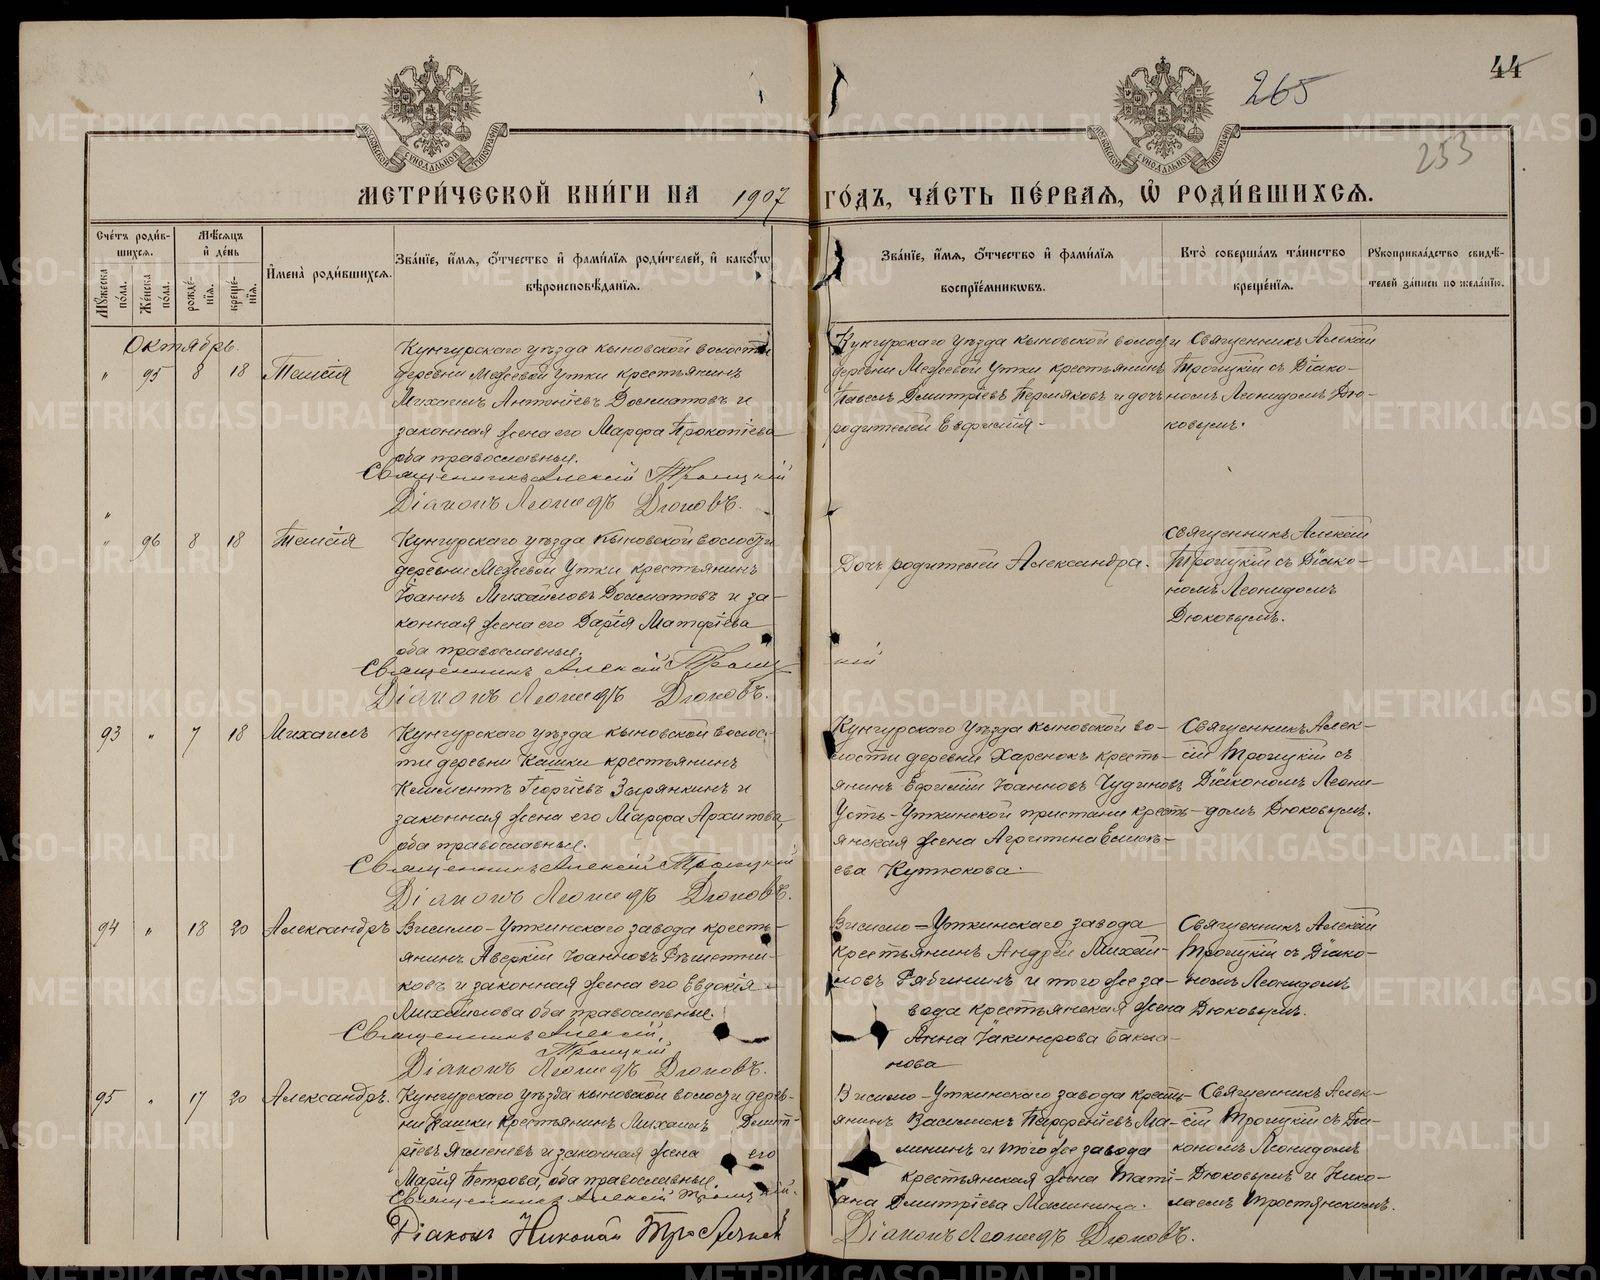 265
44
253
МЕТРИ́ЧЕСКОЙ КНИ́ГИ НА 1907 ГО́ДЪ, ЧА́СТЬ ПЕ́РВАЯ, Ѿ РОДИ́ВШИХСЯ.
Сче́тъ роди́вшихся.
Мѣ́сяцъ и де́нь
Му́жеска по́ла.
Же́нска по́ла.
рожде́нія.
креще́нія.
Имена̀ роди́вшихся.
Зва́ніе, и́мя, о́тчество и фами́лія роди́телей, и како́гѡ
вѣроисповѣ́данія.
Зва́ніе, и́мя, о́тчество и фами́лія
воспріе́мникѡвъ.
Кто̀ соверша́лъ та́инство
креще́нія.
Рукоприкла́дство свидѣ́-
телей за́писи по жела́нію.
Октябрь.
" 95 8 18 Таисія
Кунгурскаго уѣзда Кыновской волости
деревни Межевой Утки крестьянинъ
Михаилъ Антоніевъ Долматовъ и
законная жена его Марфа Прокопіева
оба православные.
Священникъ Алексій Троицкій
Діаконъ Леонидъ Дюковъ.
Кунгурскаго уѣзда Кыновской волости
деревни Межевой Утки крестьянинъ
Павелъ Димитріевъ Пермяковъ и дочь
родителей Евфимія.
Священникъ Алексій
Троицкій съ Діако-
номъ Леонидомъ Дю-
ковымъ.
" 96 8 18 Таисія
Кунгурскаго уѣзда Кыновской волости
деревни Межевой Утки крестьянинъ
Іоаннъ Михайловъ Долматовъ и за-
конная жена его Дарія Матфіева
оба православные.
Священникъ Алексій Троиц
кій
Діаконъ Леонидъ Дюковъ.
Дочь родителей Александра.
Священникъ Алексій
Троицкій съ Діако-
номъ Леонидомъ
Дюковымъ.
93 " 7 18 Михаилъ
Кунгурскаго уѣзда Кыновской волос-
ти деревни Кашки крестьянинъ
Климентъ Георгіевъ Зырянкинъ и
законная жена его Марфа Архипова,
оба православные.
Священникъ Алексій Троицкій
Діаконъ Леонидъ Дюковъ.
Кунгурскаго уѣзда Кыновской во-
лости деревни Харенокъ кресть-
янинъ Ефимій Іоанновъ Чудиновъ
Усть-Уткинской пристани кресть-
янская жена
ева Кутюкова.
Священникъ Алек-
сій Троицкій съ
Діакономъ Леони-
домъ Дюковымъ.
94 " 18 20 Александръ
Висимо-Уткинскаго завода кресть-
янинъ Аверкій Іоанновъ Рѣшетни-
ковъ и законная жена его Евдокія
Михайлова оба православные.
Священникъ Алексій
Троицкій
Діаконъ Леонидъ Дюковъ.
Висимо-Уткинскаго завода
крестьянинъ Андрей Михай-
ловъ Рябининъ и того же за-
вода крестьянская жена
Анна Іакинѳова Бакла-
нова
Священникъ Алексій
Троицкій съ Діако-
номъ Леонидомъ
Дюковымъ.
95 " 17 20 Александръ.
Кунгурскаго уѣзда Кыновской волости дерев-
ни Кашки крестьянинъ Михаилъ Димит-
ріевъ Ячменевъ и законная жена его
Марія Петрова, оба православные.
Священникъ Алексій Троицкій.
Діаконъ Николай
Висимо-Уткинскаго завода кресть-
янинъ Василискъ Парфеніевъ Ма-
лининъ и того же завода
крестьянская жена Тати-
ана Димитріева Малинина.
Діаконъ Леонидъ Дюковъ.
Священникъ Алек-
сій Троицкій съ Діа-
кономъ Леонидомъ
Дюковымъ и Нико-
лаемъ Тростянскимъ.
METRIKI.GASO-URAL.RU